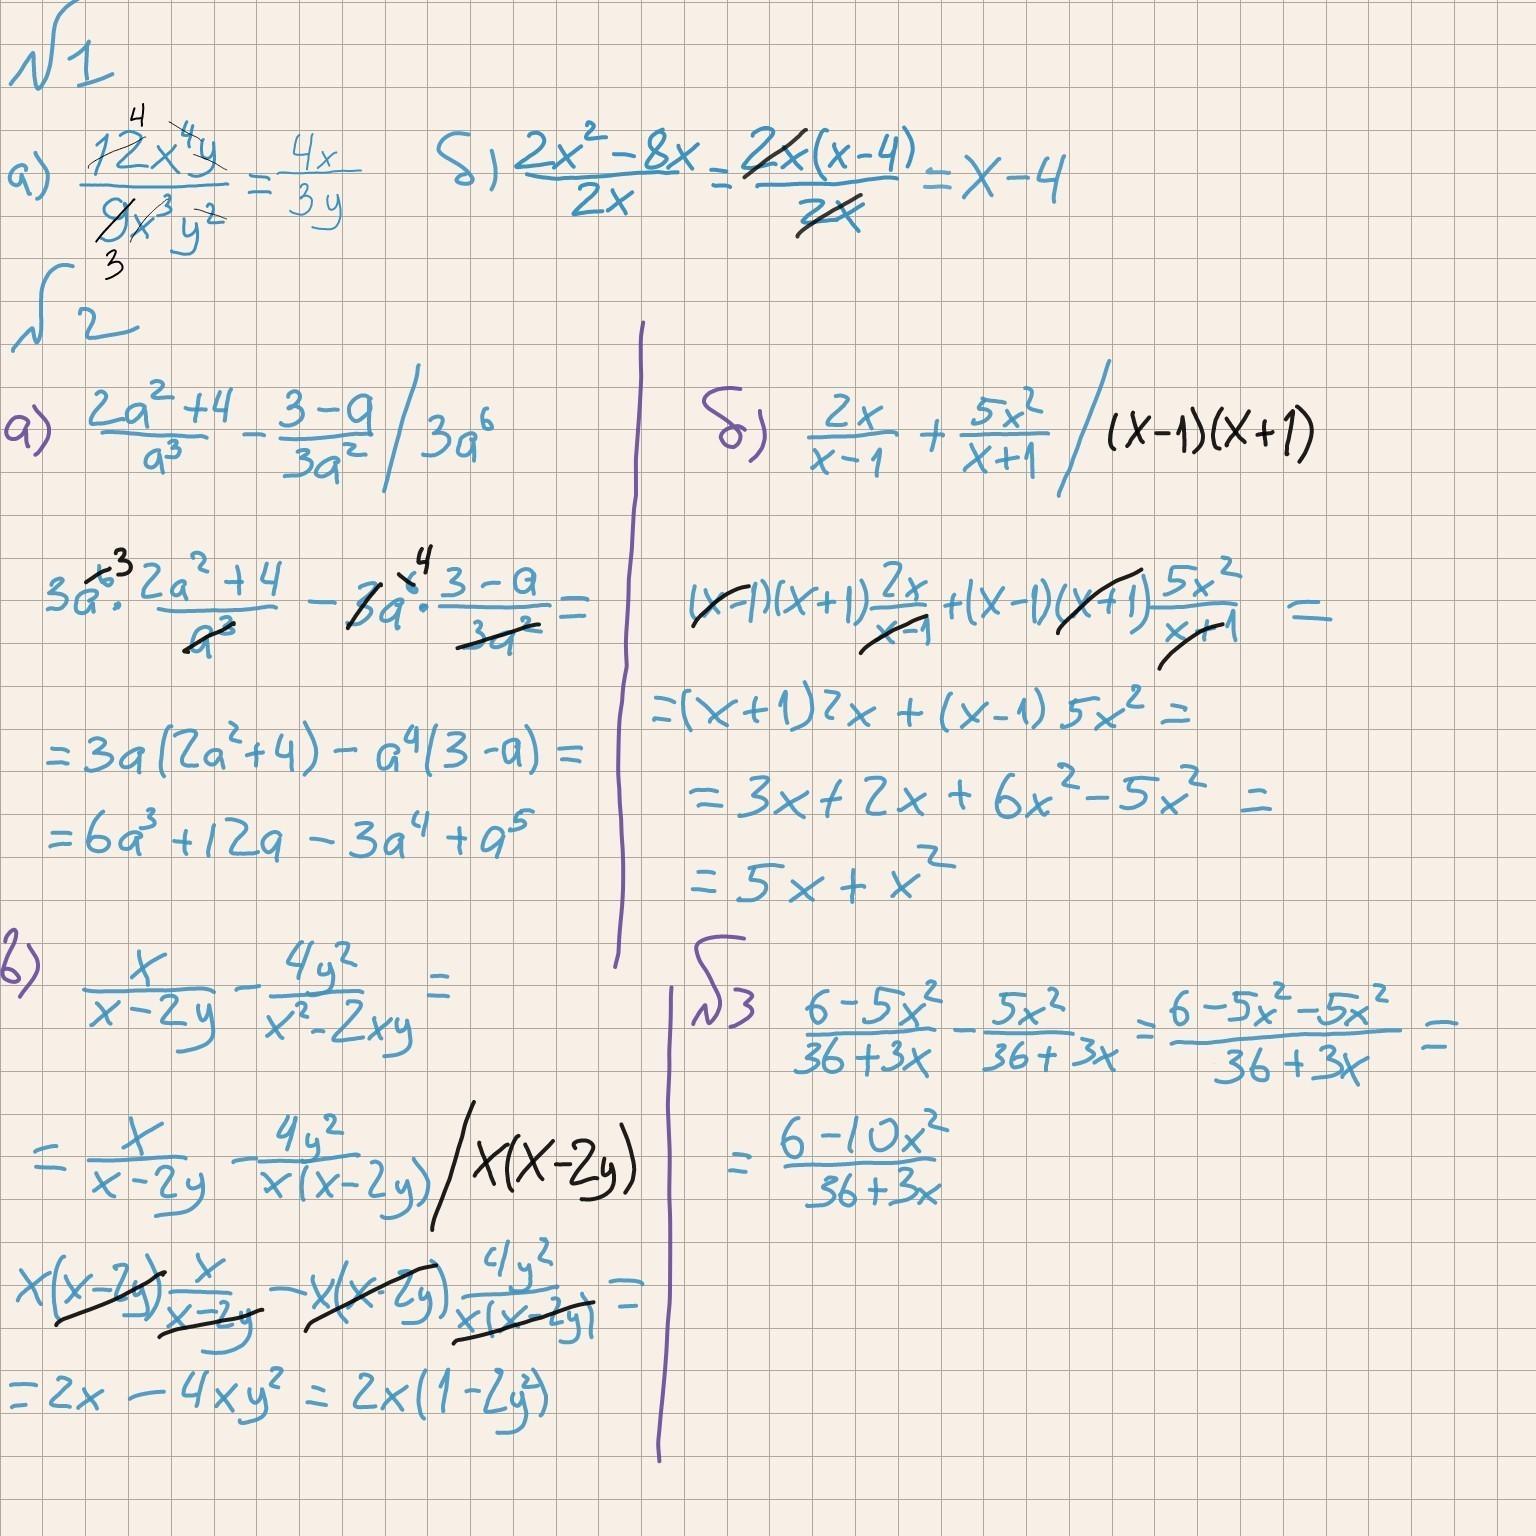 √1
а) 12x⁴y / 9x³y² = 4x / 3y   4   3
б) (2x² - 8x) / 2x = 2x(x-4) / 2x = x - 4
√2
а) (2a² + 4) / a³ - (3 - a) / 3a² / 3a⁶
3a⁶ ³ · (2a² + 4) / a³ - 3a⁶ ⁴ · (3 - a) / 3a² =
= 3a(2a² + 4) - a⁴(3 - a) =
= 6a³ + 12a - 3a⁴ + a⁵
б) 2x / (x-1) + 5x² / (x+1) / (x-1)(x+1)
(x-1)(x+1) 2x / (x-1) + (x-1)(x+1) 5x² / (x+1) =
= (x+1)2x + (x-1)5x² =
= 3x + 2x + 6x² - 5x² =
= 5x + x²
в) x / (x-2y) - 4y² / (x² - 2xy) =
= x / (x-2y) - 4y² / x(x-2y) / x(x-2y)
x(x-2y) x / (x-2y) - x(x-2y) 4y² / x(x-2y) =
= 2x - 4xy² = 2x(1 - 2y²)
√3
(6 - 5x²) / (36 + 3x) - 5x² / (36 + 3x) = (6 - 5x² - 5x²) / (36 + 3x) =
= (6 - 10x²) / (36 + 3x)